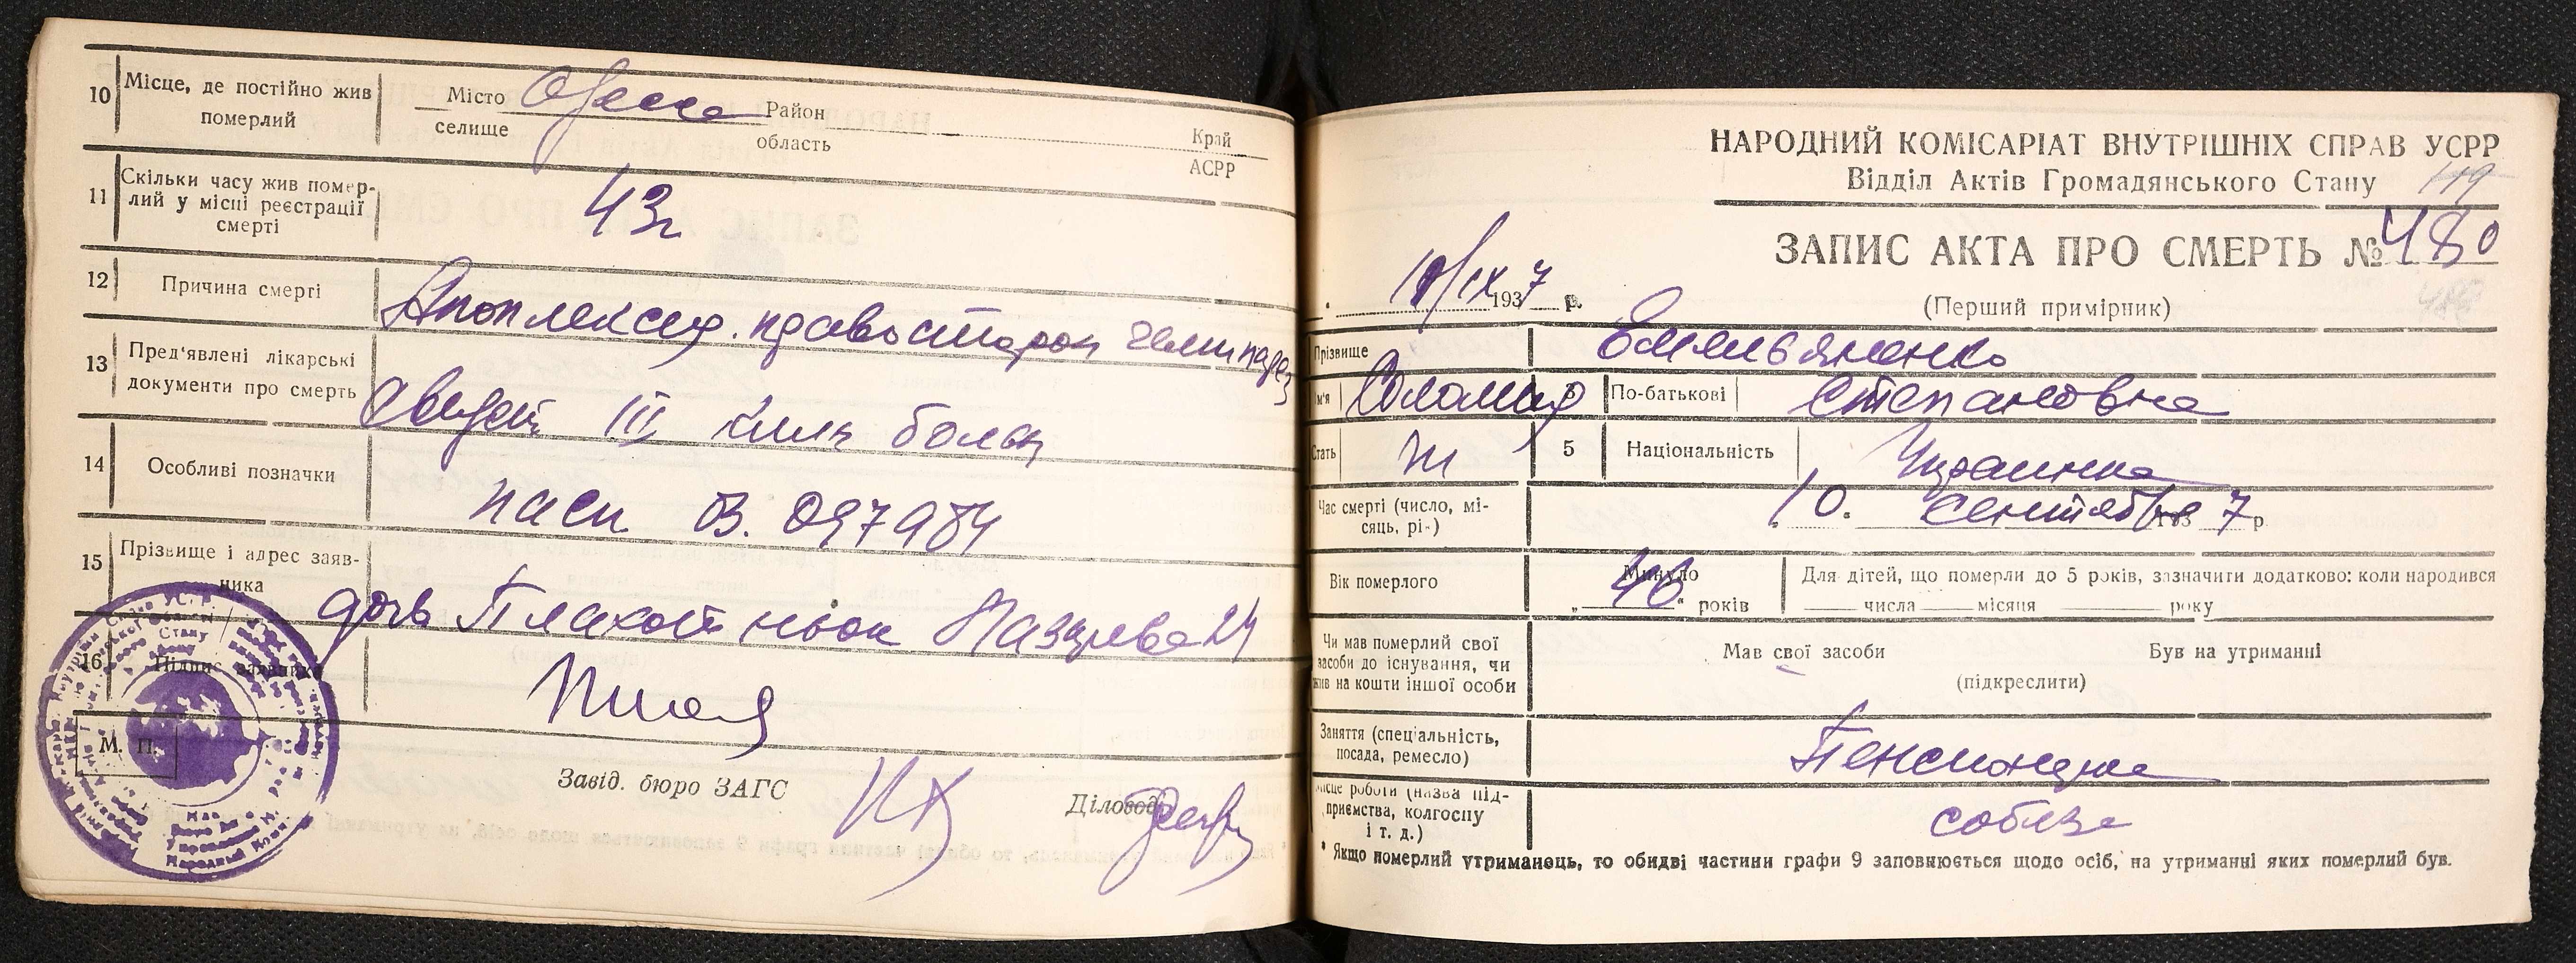 10 Місце, де постійно жив померлий
Місто Одесса Район
селище область Край
АСРР
11 Скільки часу жив помер-
лий у місці реєстрації
смерті
43г
12 Причина смерті
Апоплексия. правосторон гемипарез
13 Пред'явлені лікарські
документи про смерть
III клин больн
14 Особливі позначки
пасп В. 097984
15 Прізвище і адрес заяв-
ника
дочь Плахотнюк 24
16 Підпис заявника
М. П.
Завід. бюро ЗАГС
Діловод
НАРОДНИЙ КОМІСАРІАТ ВНУТРІШНІХ СПРАВ УСРР
Відділ Актів Громадянського Стану 119
ЗАПИС АКТА ПРО СМЕРТЬ № 480
(Перший примірник)
/IX 1937 р.
Прізвище Емельяненко
м'я Соломия По-батькові Степановна
Стать ж 5 Національність Украинка
Час смерті (число, мі-
сяць, рі-)
10. сентября 1937 р
Вік померлого
Минуло
„ 46 " років
Для дітей, що померли до 5 років, зазначити додатково: коли народився
числа місяця року
Чи мав померлий свої
засоби до існування, чи
жив на кошти іншої особи
Мав свої засоби Був на утриманні
(підкреслити)
Заняття (спеціальність,
посада, ремесло)
Пенсионерка
місце роботи (назва під-
приємства, колгоспу
і т. д.)
собеза
* Якщо померлий утриманець, то обидві частини графи 9 заповнюється щодо осіб, на утриманні яких померлий був.